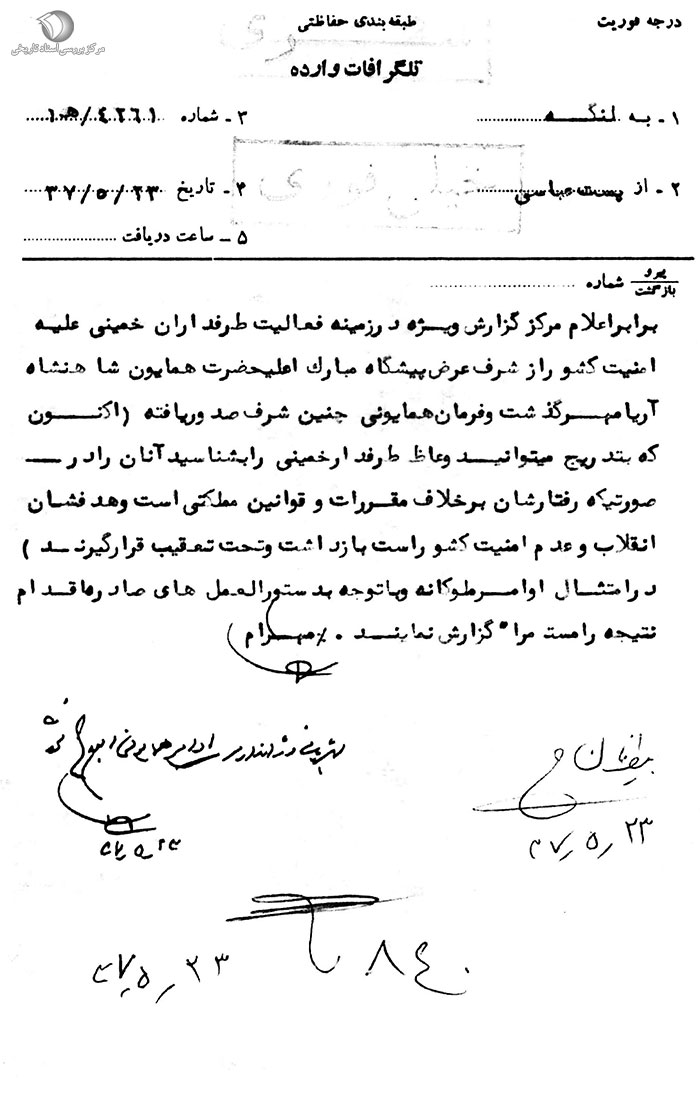 مرکز بررسی اسناد تاریخی
درجه فوریت
طبقه بندی حفاظتی
سری
تلگرافات وارده
۱ - به لنگه
۳ - شماره ۴۲۶۱/ه۱
خیلی فوری
۲ - از بندرعباس
۴ - تاریخ ۳۷/۵/۲۳
۵ - ساعت دریافت
پیرو
بازگشت
شماره
برابر اعلام مرکز گزارش ویژه درزمینه فعالیت طرفداران خمینی علیه
امنیت کشور از شرف عرض پیشگاه مبارك اعلیحضرت همایون شاهنشاه
آریامهر گذشت وفرمان همایونی چنین شرف صدوریافته (اکنون
که بتدریج میتوانید وعاظ طرفدارخمینی رابشناسید آنان رادر
صورتیکه رفتارشان برخلاف مقررات و قوانین مملکتی است وهدفشان
انقلاب وعدم امنیت کشوراست بازداشت وتحت تعقیب قرارگیرند )
درامتثال اوامرملوکانه وباتوجه بدستورالعمل های صادره اقدام
نتیجه رامستمرا" گزارش نمایند . ٪ مهرام
۴۷٫۵٫۲۳
۴۷٫۵٫۲۳
۸۴۰
۴۷٫۵٫۲۳